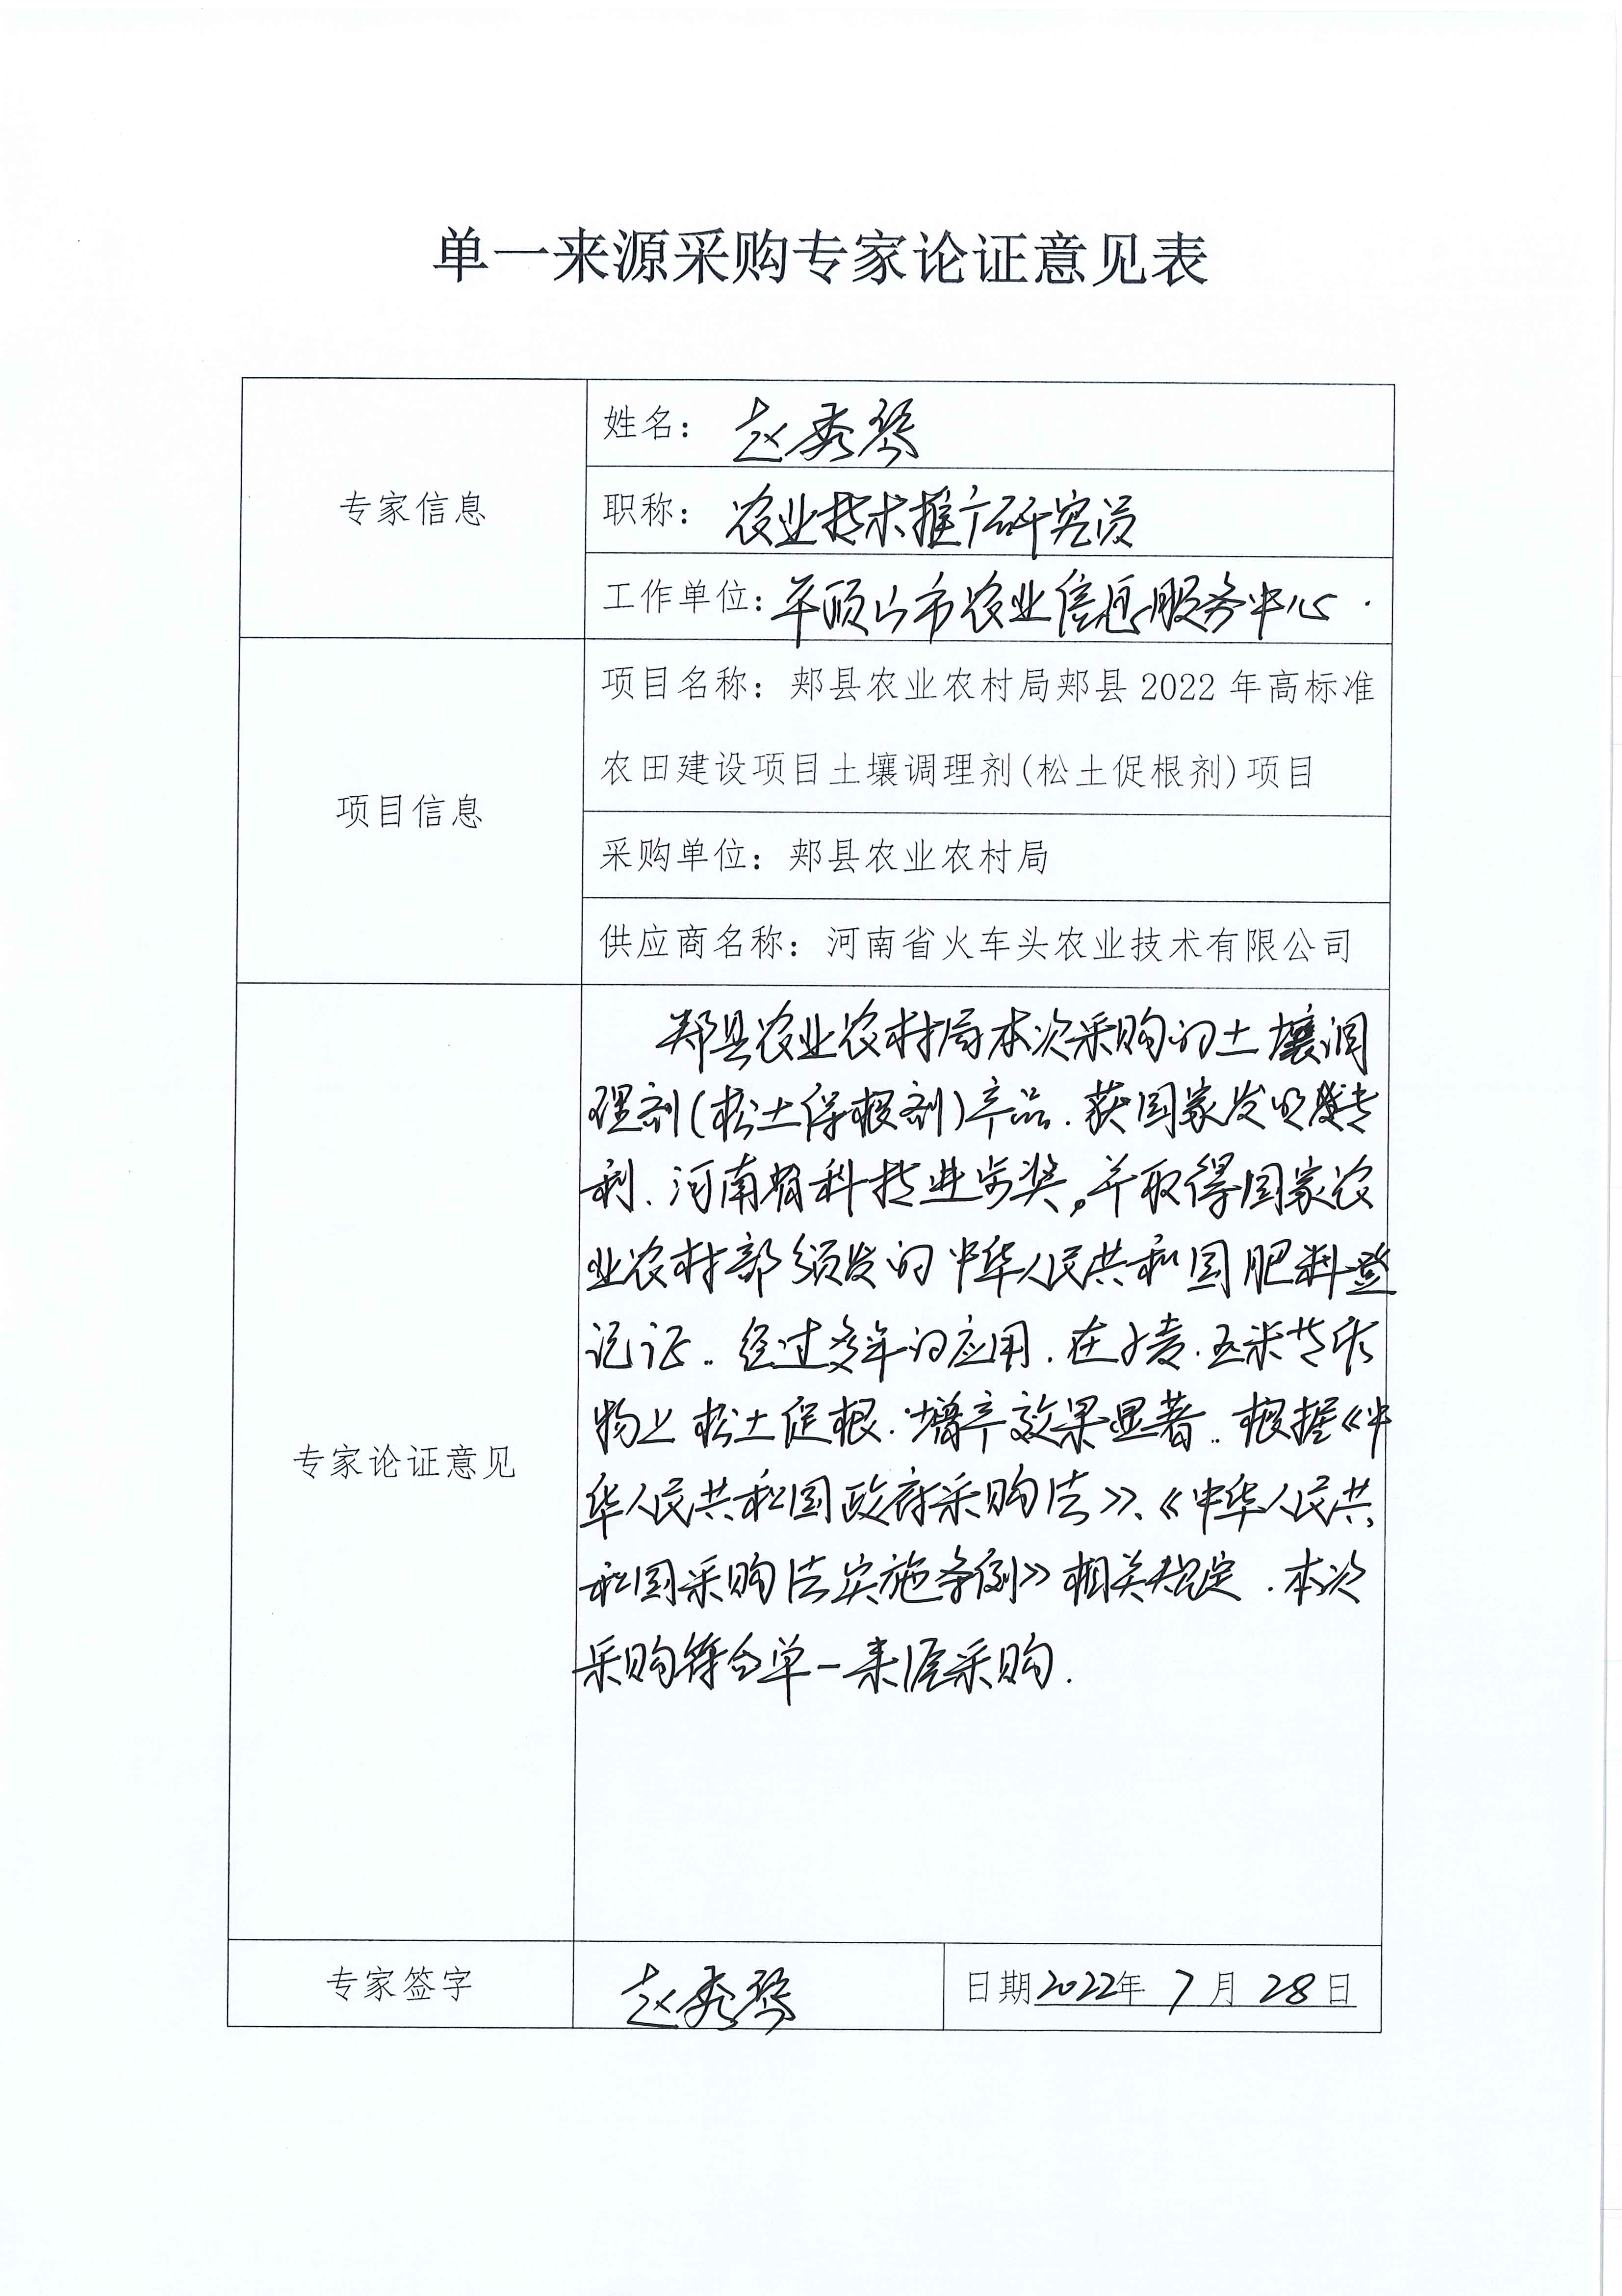 单一来源采购专家论证意见表
专家信息
姓名：赵秀琴
职称：农业技术推广研究员
工作单位：平顶山市农业信息服务中心
项目信息
项目名称：郏县农业农村局郏县 2022 年高标准
农田建设项目土壤调理剂(松土促根剂)项目
采购单位：郏县农业农村局
供应商名称：河南省火车头农业技术有限公司
专家论证意见
郏县农业农村局本次采购的土壤调
理剂(松土促根剂)产品.获国家发明专
利、河南省科技进步奖,并取得国家农
业农村部颁发的中华人民共和国肥料登
记证.经过多年的应用.在小麦.玉米等作
物上松土促根.增产效果显著.根据《中
华人民共和国政府采购法》、《中华人民共
和国采购法实施条例》相关规定.本次
采购符合单一来源采购.
专家签字
赵秀琴
日期2022年 7 月 28 日